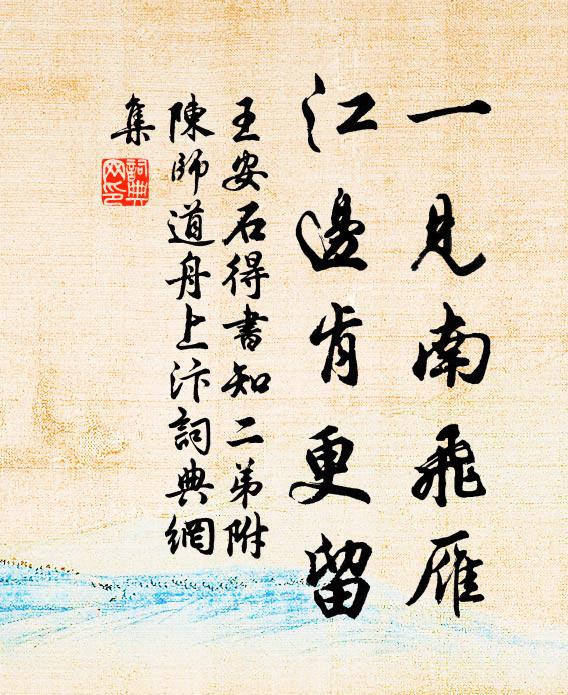 一見南飛雁
江邊肯更留
王安石得書知二弟附
陳師道舟上汴詞典網
集
詞典網印